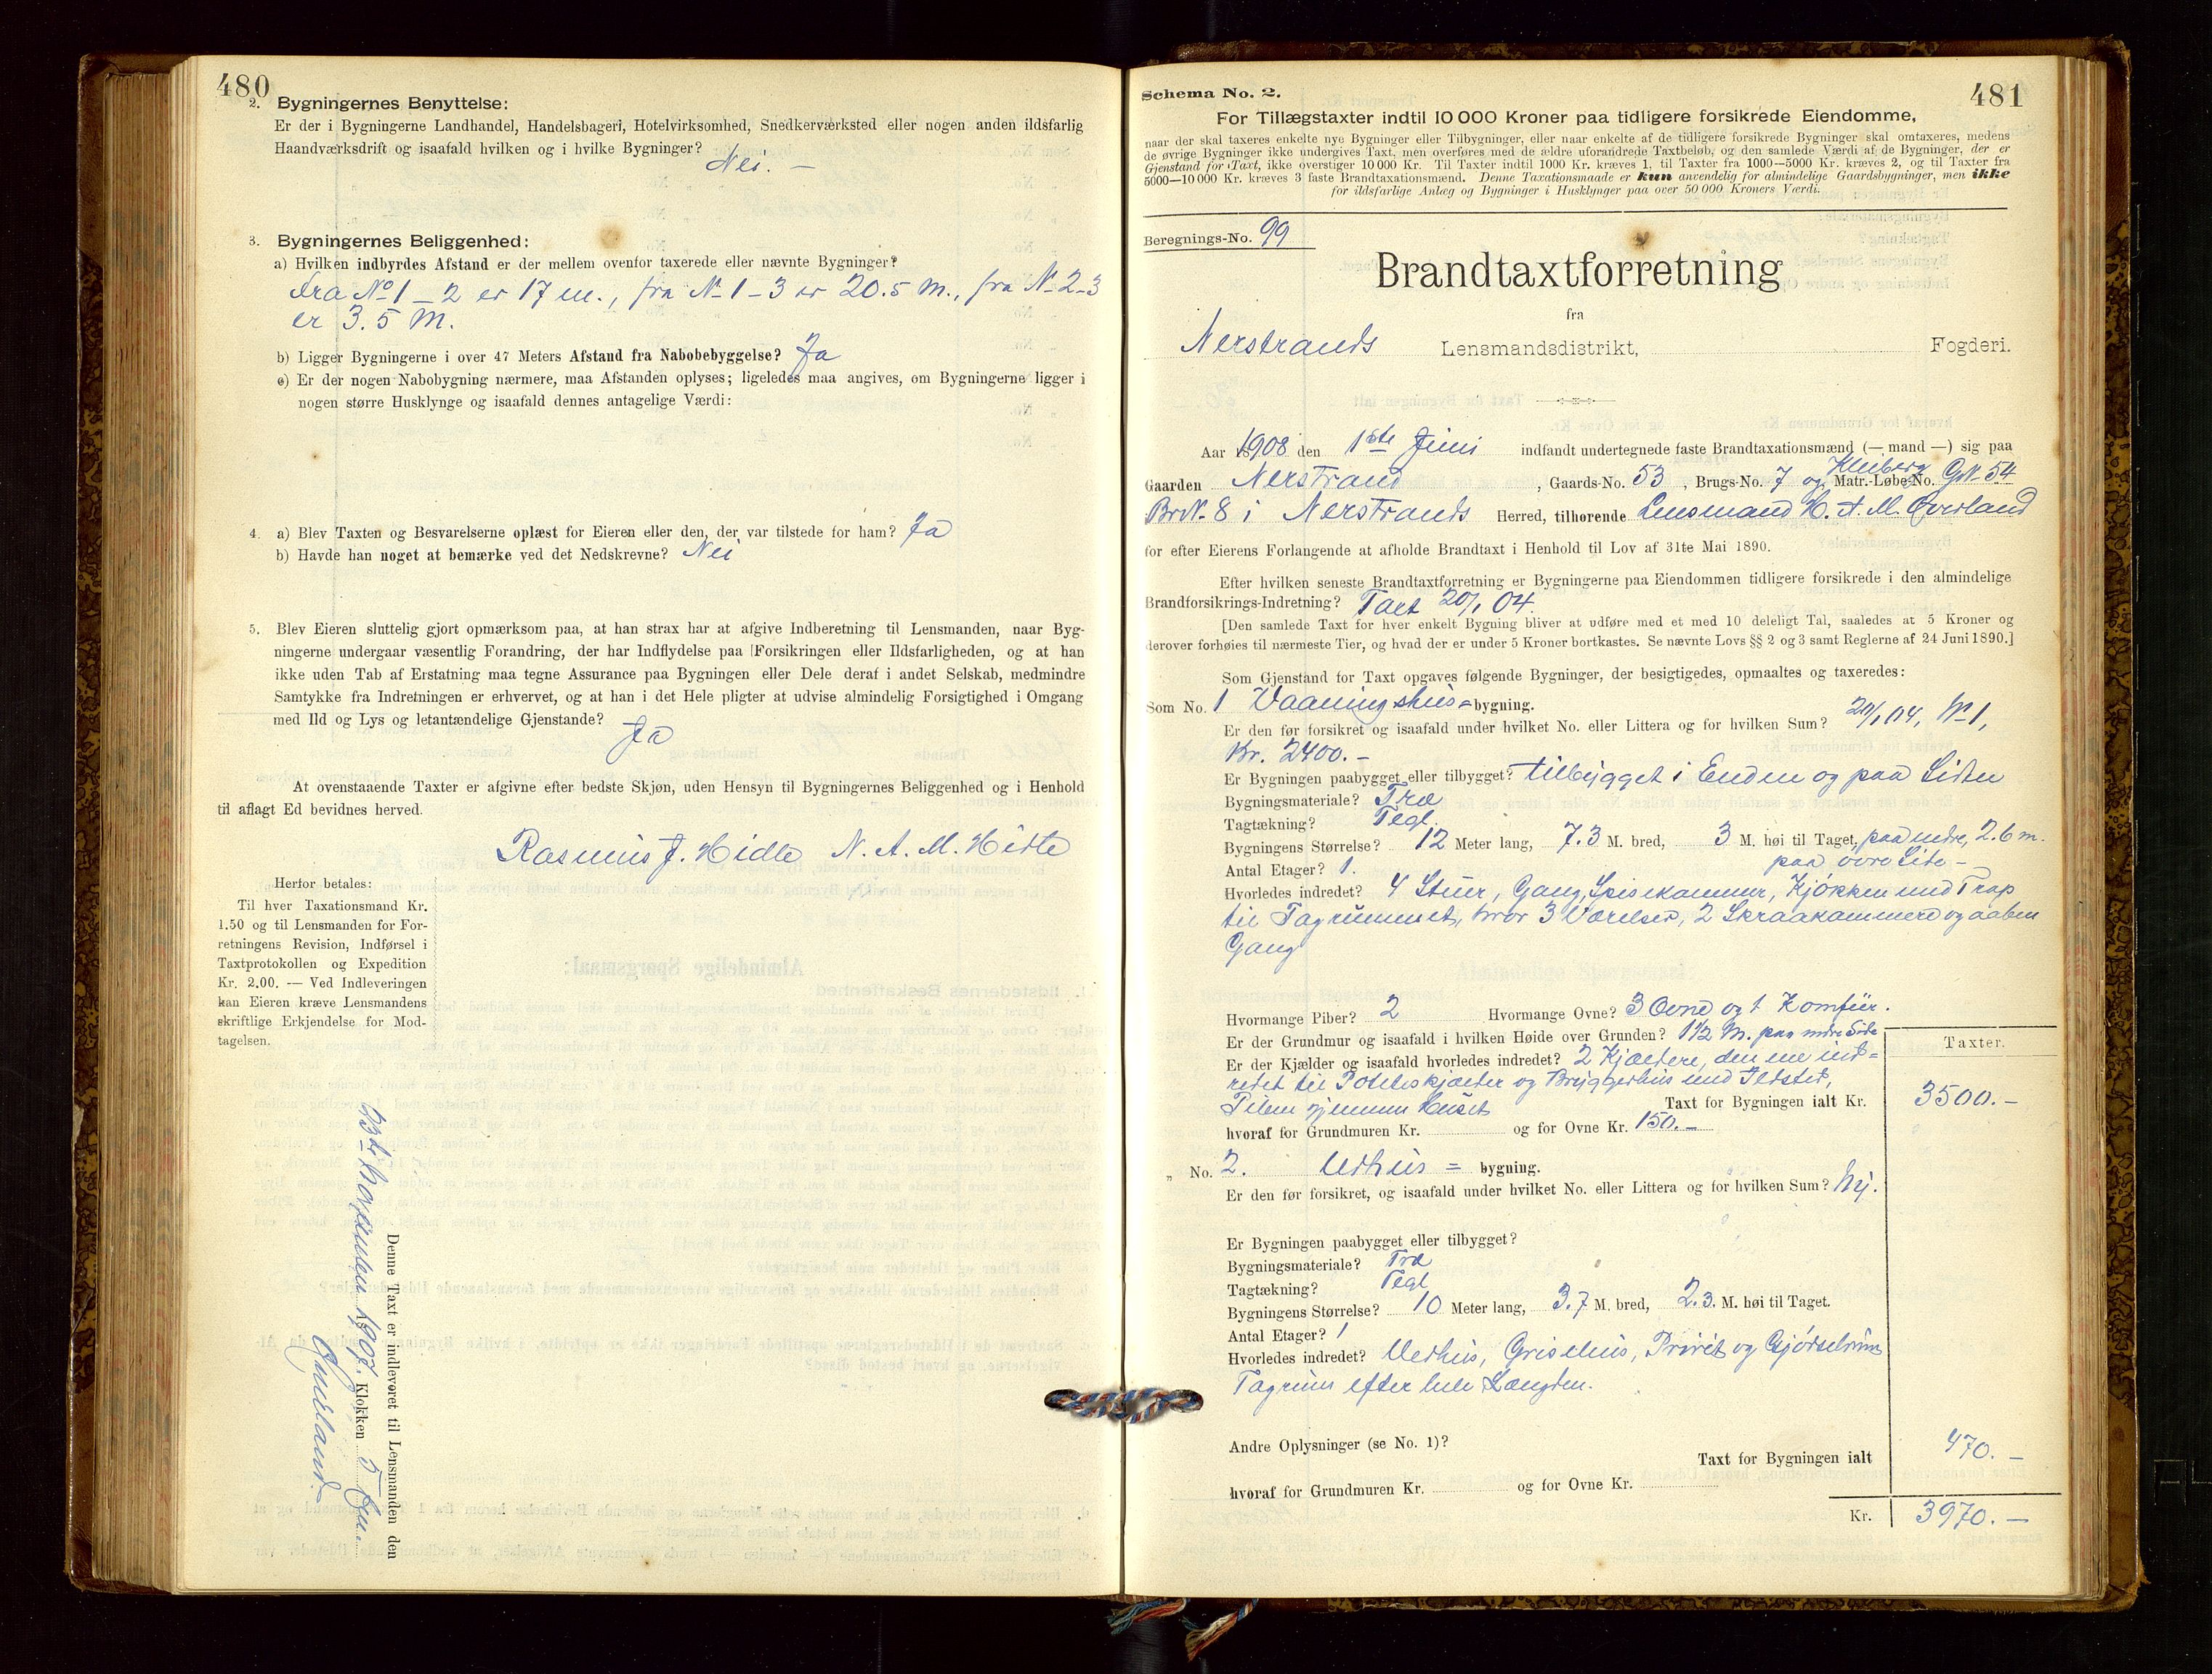 480
2. Bygningernes Benyttelse:
Er der i Bygningerne Landhandel, Handelsbageri, Hotelvirksomhed, Snedkerværksted eller nogen anden ildsfarlig
Haandværksdrift og isaafald hvilken og i hvilke Bygninger? Nei. —
3. Bygningernes Beliggenhed:
a) Hvilken indbyrdes Afstand er der mellem ovenfor taxerede eller nævnte Bygninger?
Fra No 1 - 2 er 17 m., fra N. 1 - 3 er 20.5 M., fra N. 2-3
er 3.5 M.
b) Ligger Bygningerne i over 47 Meters Afstand fra Nabobebyggelse? Ja
c) Er der nogen Nabobygning nærmere, maa Afstanden oplyses; ligeledes maa angives, om Bygningerne ligger i
nogen større Husklynge og isaafald dennes antagelige Værdi:
4. a) Blev Taxten og Besvarelserne oplæst for Eieren eller den, der var tilstede for ham? Ja
b) Havde han noget at bemærke ved det Nedskrevne? Nei
5. Blev Eieren sluttelig gjort opmærksom paa, at han strax har at afgive Indberetning til Lensmanden, naar Byg-
ningerne undergaar væsentlig Forandring, der har Indflydelse paa Forsikringen eller Ildsfarligheden, og at han
ikke uden Tab af Erstatning maa tegne Assurance paa Bygningen eller Dele deraf i andet Selskab, medmindre
Samtykke fra Indretningen er erhvervet, og at han i det Hele pligter at udvise almindelig Forsigtighed i Omgang
med Ild og Lys og letantændelige Gjenstande? Ja
At ovenstaaende Taxter er afgivne efter bedste Skjøn, uden Hensyn til Bygningernes Beliggenhed og i Henhold
til aflagt Ed bevidnes herved.
Rasmus J. Hidle N. A. M. Hidle
Herfor betales:
Til hver Taxationsmand Kr.
1.50 og til Lensmanden for For-
retningens Revision, Indførsel i
Taxtprotokollen og Expedition
Kr. 2.00. — Ved Indleveringen
kan Eieren kræve Lensmandens
skriftlige Erkjendelse for Mod-
tagelsen.
Denne Taxt er indleveret til Lensmanden den
1907. Klokken 5
481
Schema No. 2.
For Tillægstaxter indtil 10 000 Kroner paa tidligere forsikrede Eiendomme,
naar der skal taxeres enkelte nye Bygninger eller Tilbygninger, eller naar enkelte af de tidligere forsikrede Bygninger skal omtaxeres, medens
de øvrige Bygninger ikke undergives Taxt, men overføres med de ældre uforandrede Taxtbeløb, og den samlede Værdi af de Bygninger, der er
Gjenstand for Taxt, ikke overstiger 10 000 Kr. Til Taxter indtil 1000 Kr. kræves 1, til Taxter fra 1000—5000 Kr. kræves 2, og til Taxter fra
5000—10 000 Kr. kræves 3 faste Brandtaxationsmænd. Denne Taxationsmaade er kun anvendelig for almindelige Gaardsbygninger, men ikke
for ildsfarlige Anlæg og Bygninger i Husklynger paa over 50 000 Kroners Værdi.
Beregnings-No. 99
Brandtaxtforretning
fra
Nerstrands Lensmandsdistrikt, Fogderi.
Aar 1908 den 1ste Juni indfandt undertegnede faste Brandtaxationsmænd (— mand —) sig paa
Gaarden Nerstrand, Gaards-No. 53, Brugs-No. 7 og Matr.-Løbe-No. GN. 54
BrN. 8 i Nerstrands Herred, tilhørende Lensmand H. A. M. Øverland
for efter Eierens Forlangende at afholde Brandtaxt i Henhold til Lov af 31te Mai 1890.
Efter hvilken seneste Brandtaxtforretning er Bygningerne paa Eiendommen tidligere forsikrede i den almindelige
Brandforsikrings-Indretning? Taxt 20/1 04.
[Den samlede Taxt for hver enkelt Bygning bliver at udføre med et med 10 deleligt Tal, saaledes at 5 Kroner og
derover forhøies til nærmeste Tier, og hvad der er under 5 Kroner bortkastes. Se nævnte Lovs §§ 2 og 3 samt Reglerne af 24 Juni 1890.]
Som Gjenstand for Taxt opgaves følgende Bygninger, der besigtigedes, opmaaltes og taxeredes:
Som No. 1 Vaaningshus-bygning.
Er den før forsikret og isaafald under hvilket No. eller Littera og for hvilken Sum? 20/1 04, N. 1,
Kr. 2400.—
Er Bygningen paabygget eller tilbygget? tilbygget i Enden og paa Siden
Bygningsmateriale? Træ
Tagtækning? Tegl.
Bygningens Størrelse? 12 Meter lang, 7.3 M. bred, 3 M. høi til Taget, paa nedre, 2.6 m.
paa øvre Side —
Antal Etager? 1.
Hvorledes indredet? 4 Stuer, Gang, Spisekammer, Kjøkken med Trap
til Tagrummet, hvor 3 Værelser, 2 Skraakammere og aaben
Gang
Hvormange Piber? 2 Hvormange Ovne? 3 Ovne og 1 Komfur.
Er der Grundmur og isaafald i hvilken Høide over Grunden? 1½ M. paa nedre Side
Er der Kjælder og isaafald hvorledes indredet? 2 Kjældere, den ene ind-
redet til Poteteskjælder og Bryggerhus med Ildsted,
Pilen gjennem Huset Taxt for Bygningen ialt Kr.
Taxter.
3500.—
hvoraf for Grundmuren Kr. og for Ovne Kr. 150.—
„ No. 2. Udhus = bygning.
Er den før forsikret, og isaafald under hvilket No. eller Littera og for hvilken Sum? Nej.
Er Bygningen paabygget eller tilbygget?
Bygningsmateriale? Træ
Tagtækning? Tegl
Bygningens Størrelse? 10 Meter lang, 3.7 M. bred, 2.3. M. høi til Taget.
Antal Etager? 1
Hvorledes indredet? Vedhus, Grisehus, Privet og Gjødselrum
Tagrum efter hele Længden.
Andre Oplysninger (se No. 1)?
Taxt for Bygningen ialt 470.—
hvoraf for Grundmuren Kr. og for Ovne Kr.
Kr. 3970.—